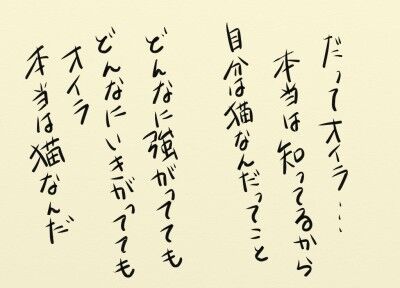 だってオイラ…
本当は知ってるから
自分は猫なんだってこと
どんなに強がってても
どんなにいきがってても
オイラ
本当は猫なんだ